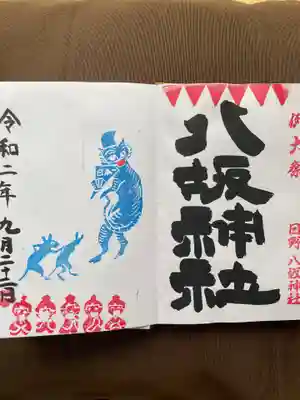 例大祭
日野 八坂神社
八坂神社
令和二年 九月二十一日